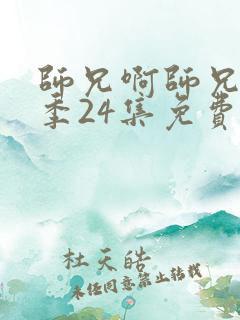 師兄啊師兄
季24集免費
杜天皓
未经同意禁止转载